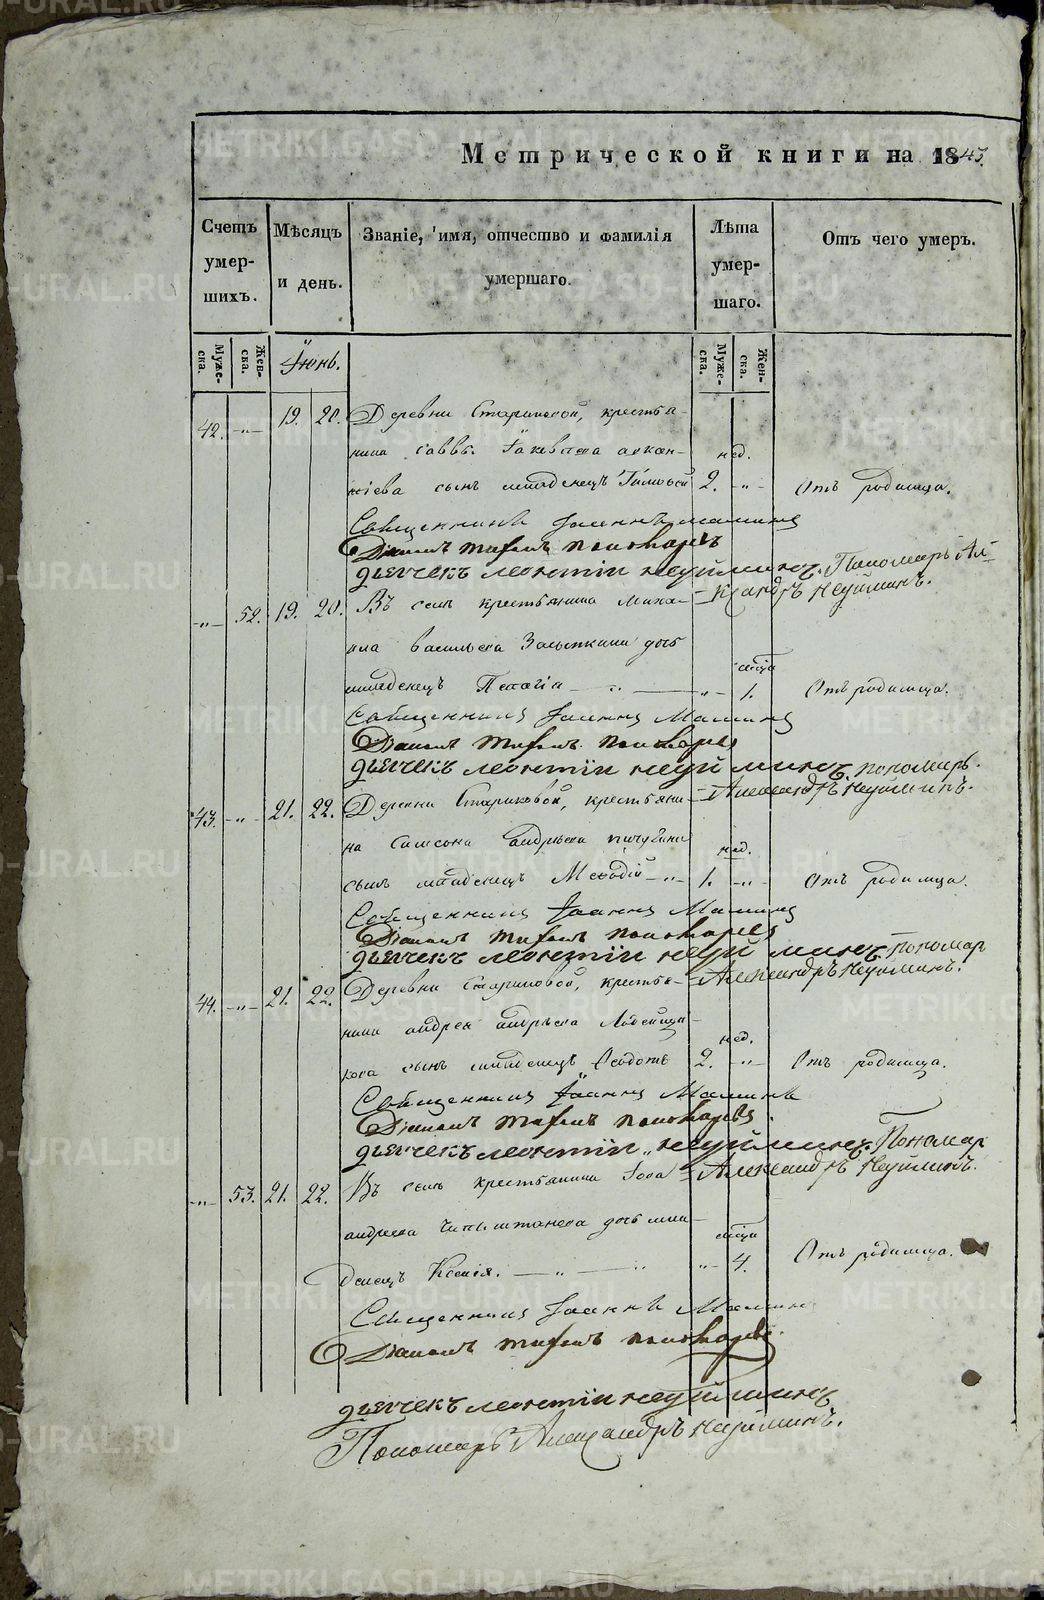 Метрической книги на 1843.
Счетъ умер-шихъ.
Мѣсяцъ и день.
Званіе, имя, отчество и фамилія умершаго.
Лѣта умер-шаго.
Отъ чего умеръ.
Муже-ска.
Жен-ска.
Іюнь.
Муже-ска.
Жен-ска.
42. -„- 19. 20. Деревни Стариковой, крестья-
нина Саввы Іаковлева
нед.
сынъ младенецъ 2. -„- Отъ родимца.
Священникъ Іоаннъ
Діаконъ Понокаревъ
дьячекъ Леонтій Неуйминъ. Пономарь Ал-
ксандръ Неуйминъ.
-„- 52. 19. 20. Въ селѣ крестьянина Миха-
ила Васильева дочь
мѣсяца
младенецъ Пелагія -„- -„- 1. Отъ родимца.
Священникъ Іоаннъ
Діаконъ Понокаревъ
дьячекъ Леонтій Неуйминъ. Пономарь.
Александръ Неуйминъ.
43. -„- 21. 22. Деревни Стариковой, крестьяни-
на Самсона Андреева Пичугина
нед.
сынъ младенецъ Меѳодій -„- 1. -„- Отъ родимца.
Священникъ Іоаннъ
Діаконъ Понокаревъ
дьячекъ Леонтій Неуйминъ. Пономар
Александръ Неуйминъ.
44. -„- 21. 22. Деревни Стариковой, крестья-
нина Андрея Андреева
нед.
кова сынъ младенецъ Ѳеодотъ 2. -„- Отъ родимца.
Священникъ Іоаннъ
Діаконъ Понокаревъ.
дьячекъ Леонтій Неуйминъ. Пономар
Александръ Неуйминъ.
-„- 53. 21. 22. Въ селѣ крестьянина
Андреева дочь мла-
мѣсяца
денецъ Ксенія. -„- -„- 4. Отъ родимца.
Священникъ Іоаннъ
Діаконъ Понокаревъ.
дьячекъ Леонтій Неуйминъ
Пономарь Александръ Неуйминъ.
METRIKI.GASO-URAL.RU